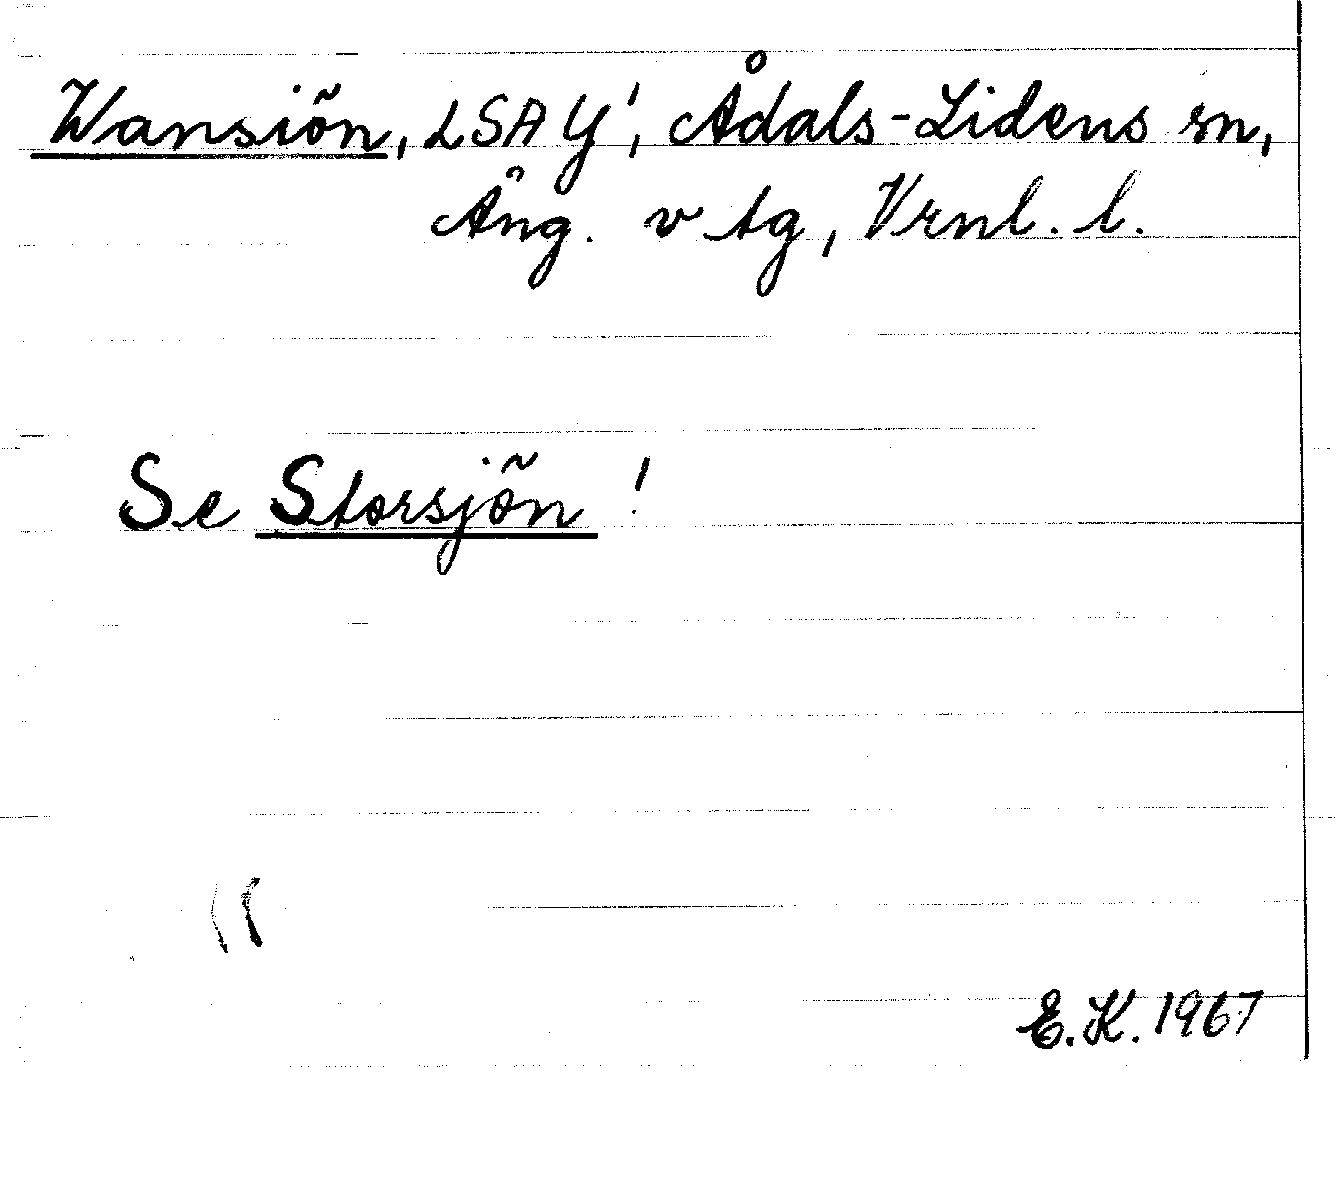 Wansiön, LSA Y', Ådals-Lidens sn,
Äng. v tg, Vrnl. l.
Se Storsjön !
E.K. 1967